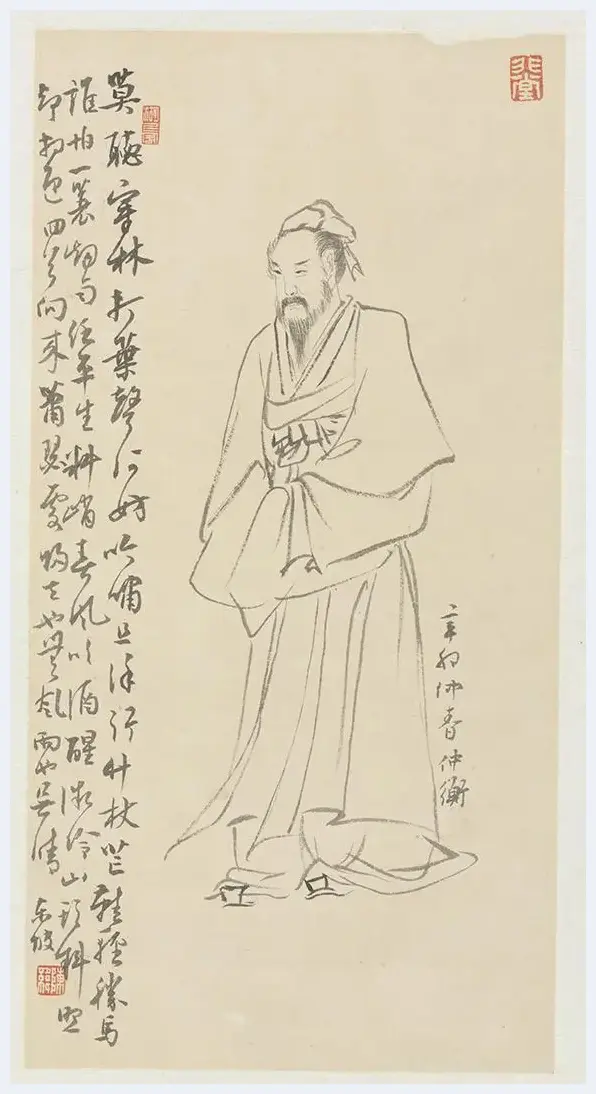 莫聽穿林打葉聲何妨吟嘯且徐行竹杖芒鞋輕勝馬
誰怕一蓑烟雨任平生料峭春風吹酒醒微冷山頭斜照
却相迎回首向來蕭瑟處歸去也無風雨也無晴 東坡
辛卯仲春仲衡